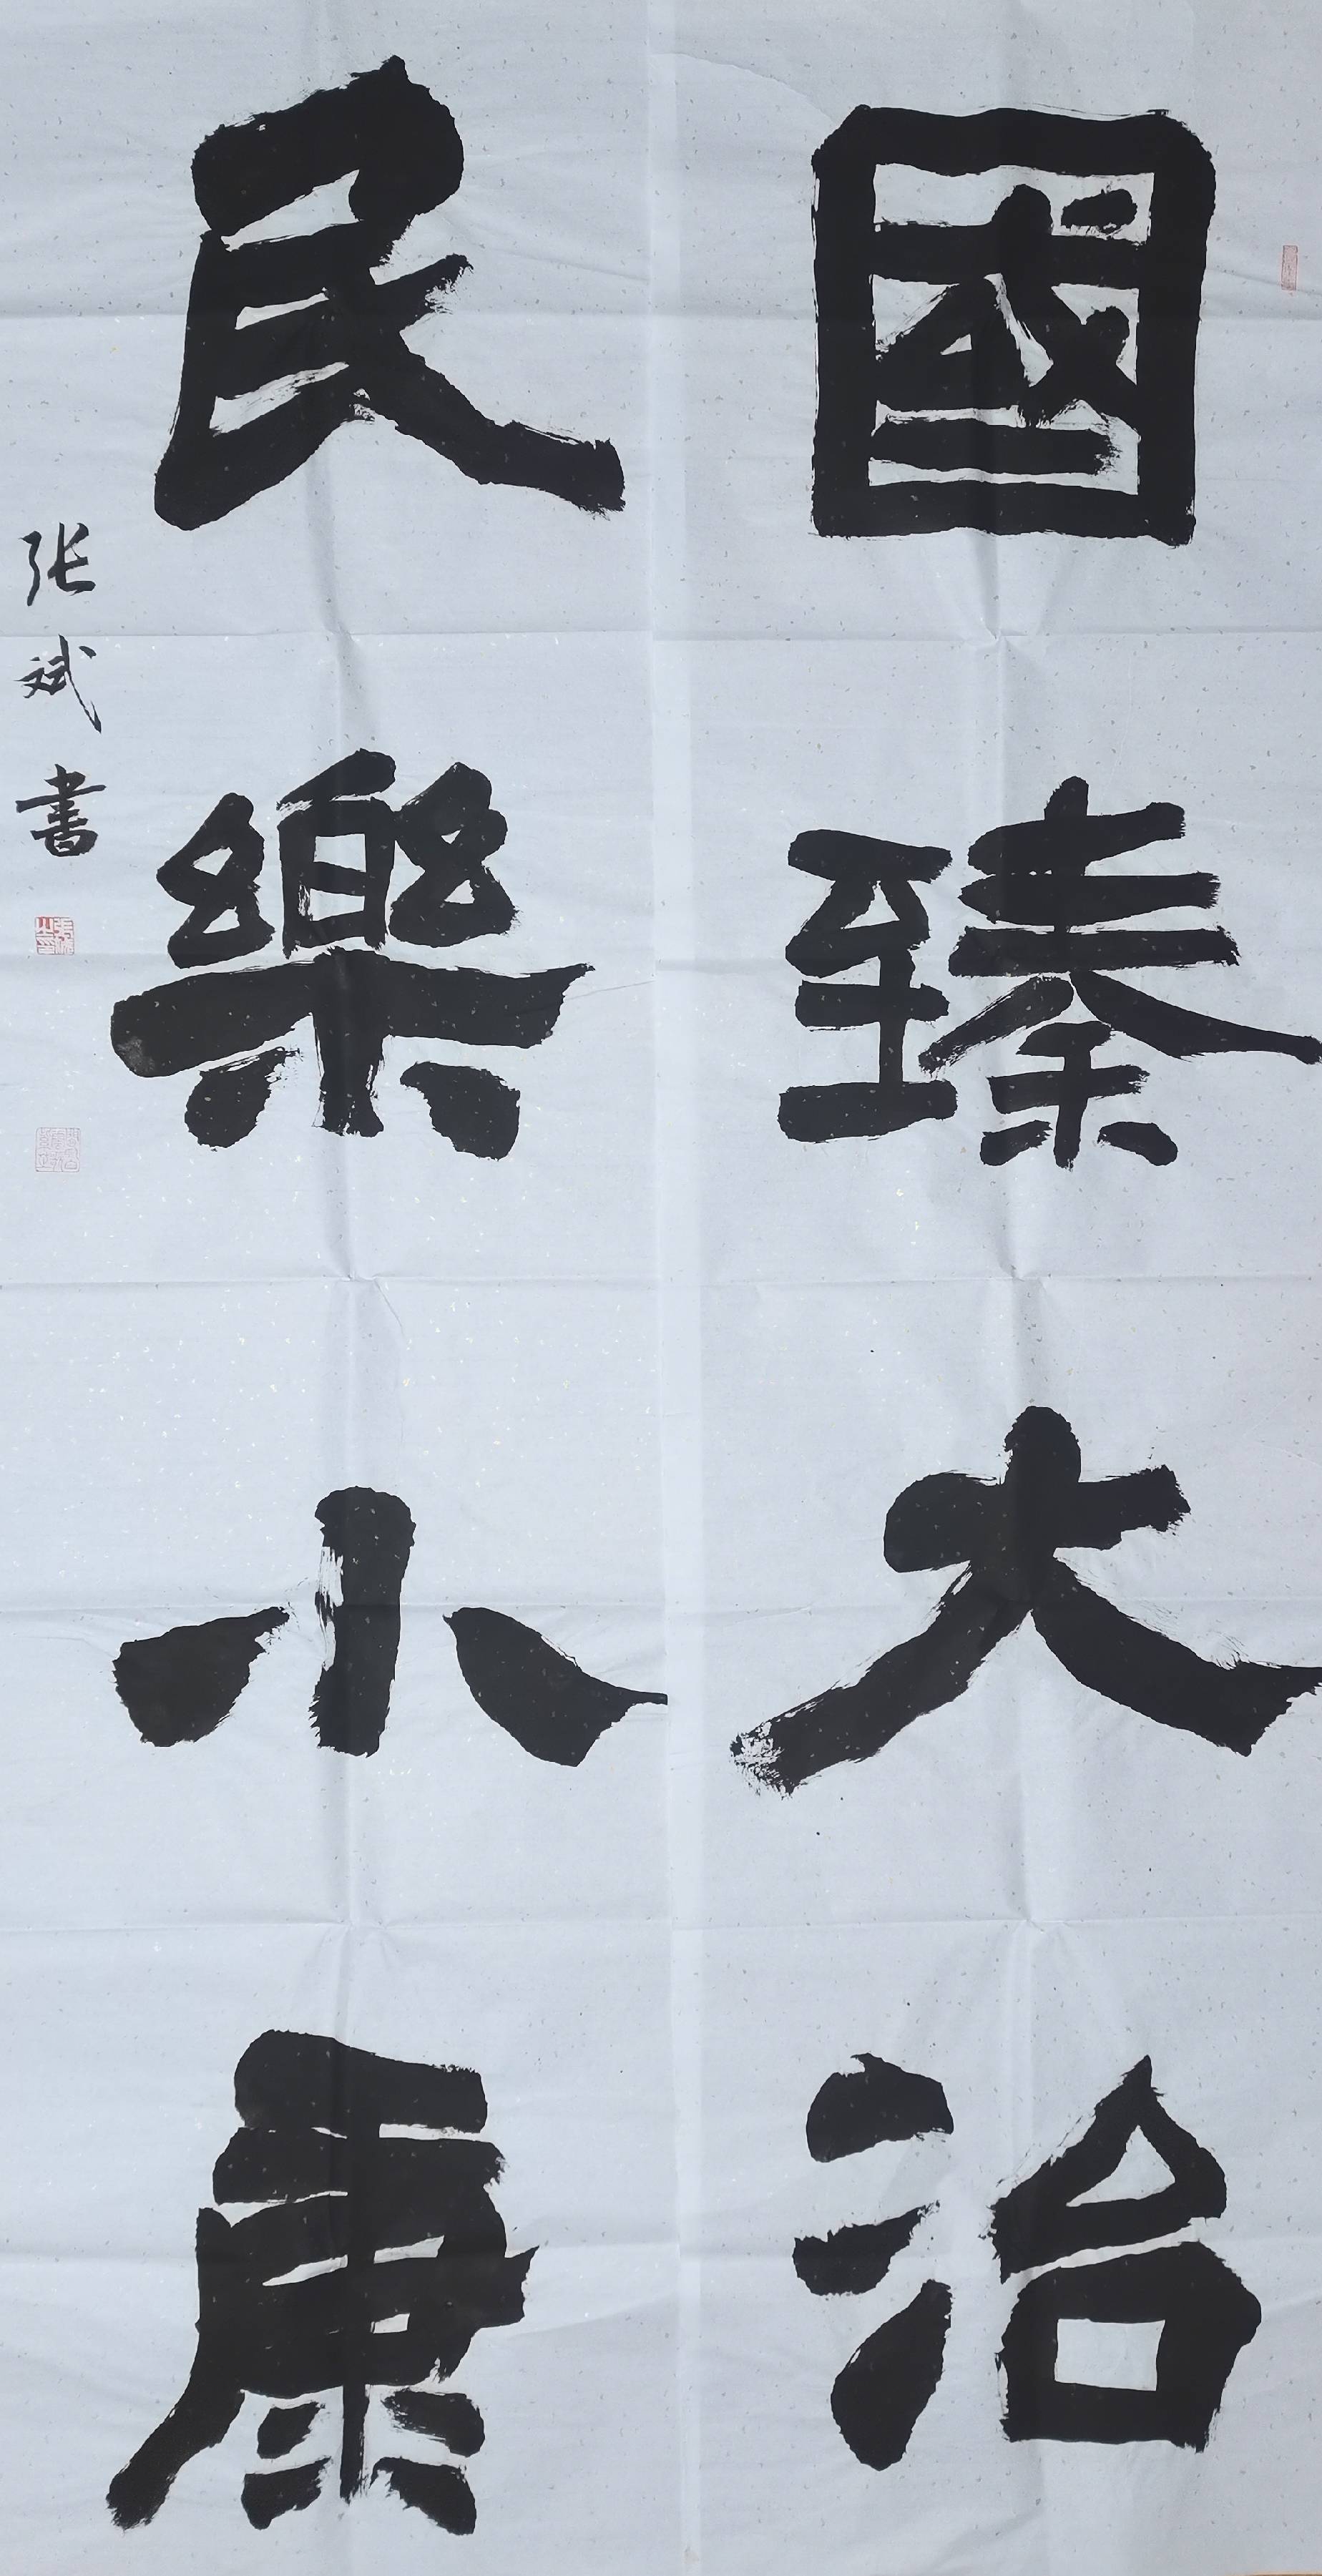 國臻大治
民樂小康
张斌書